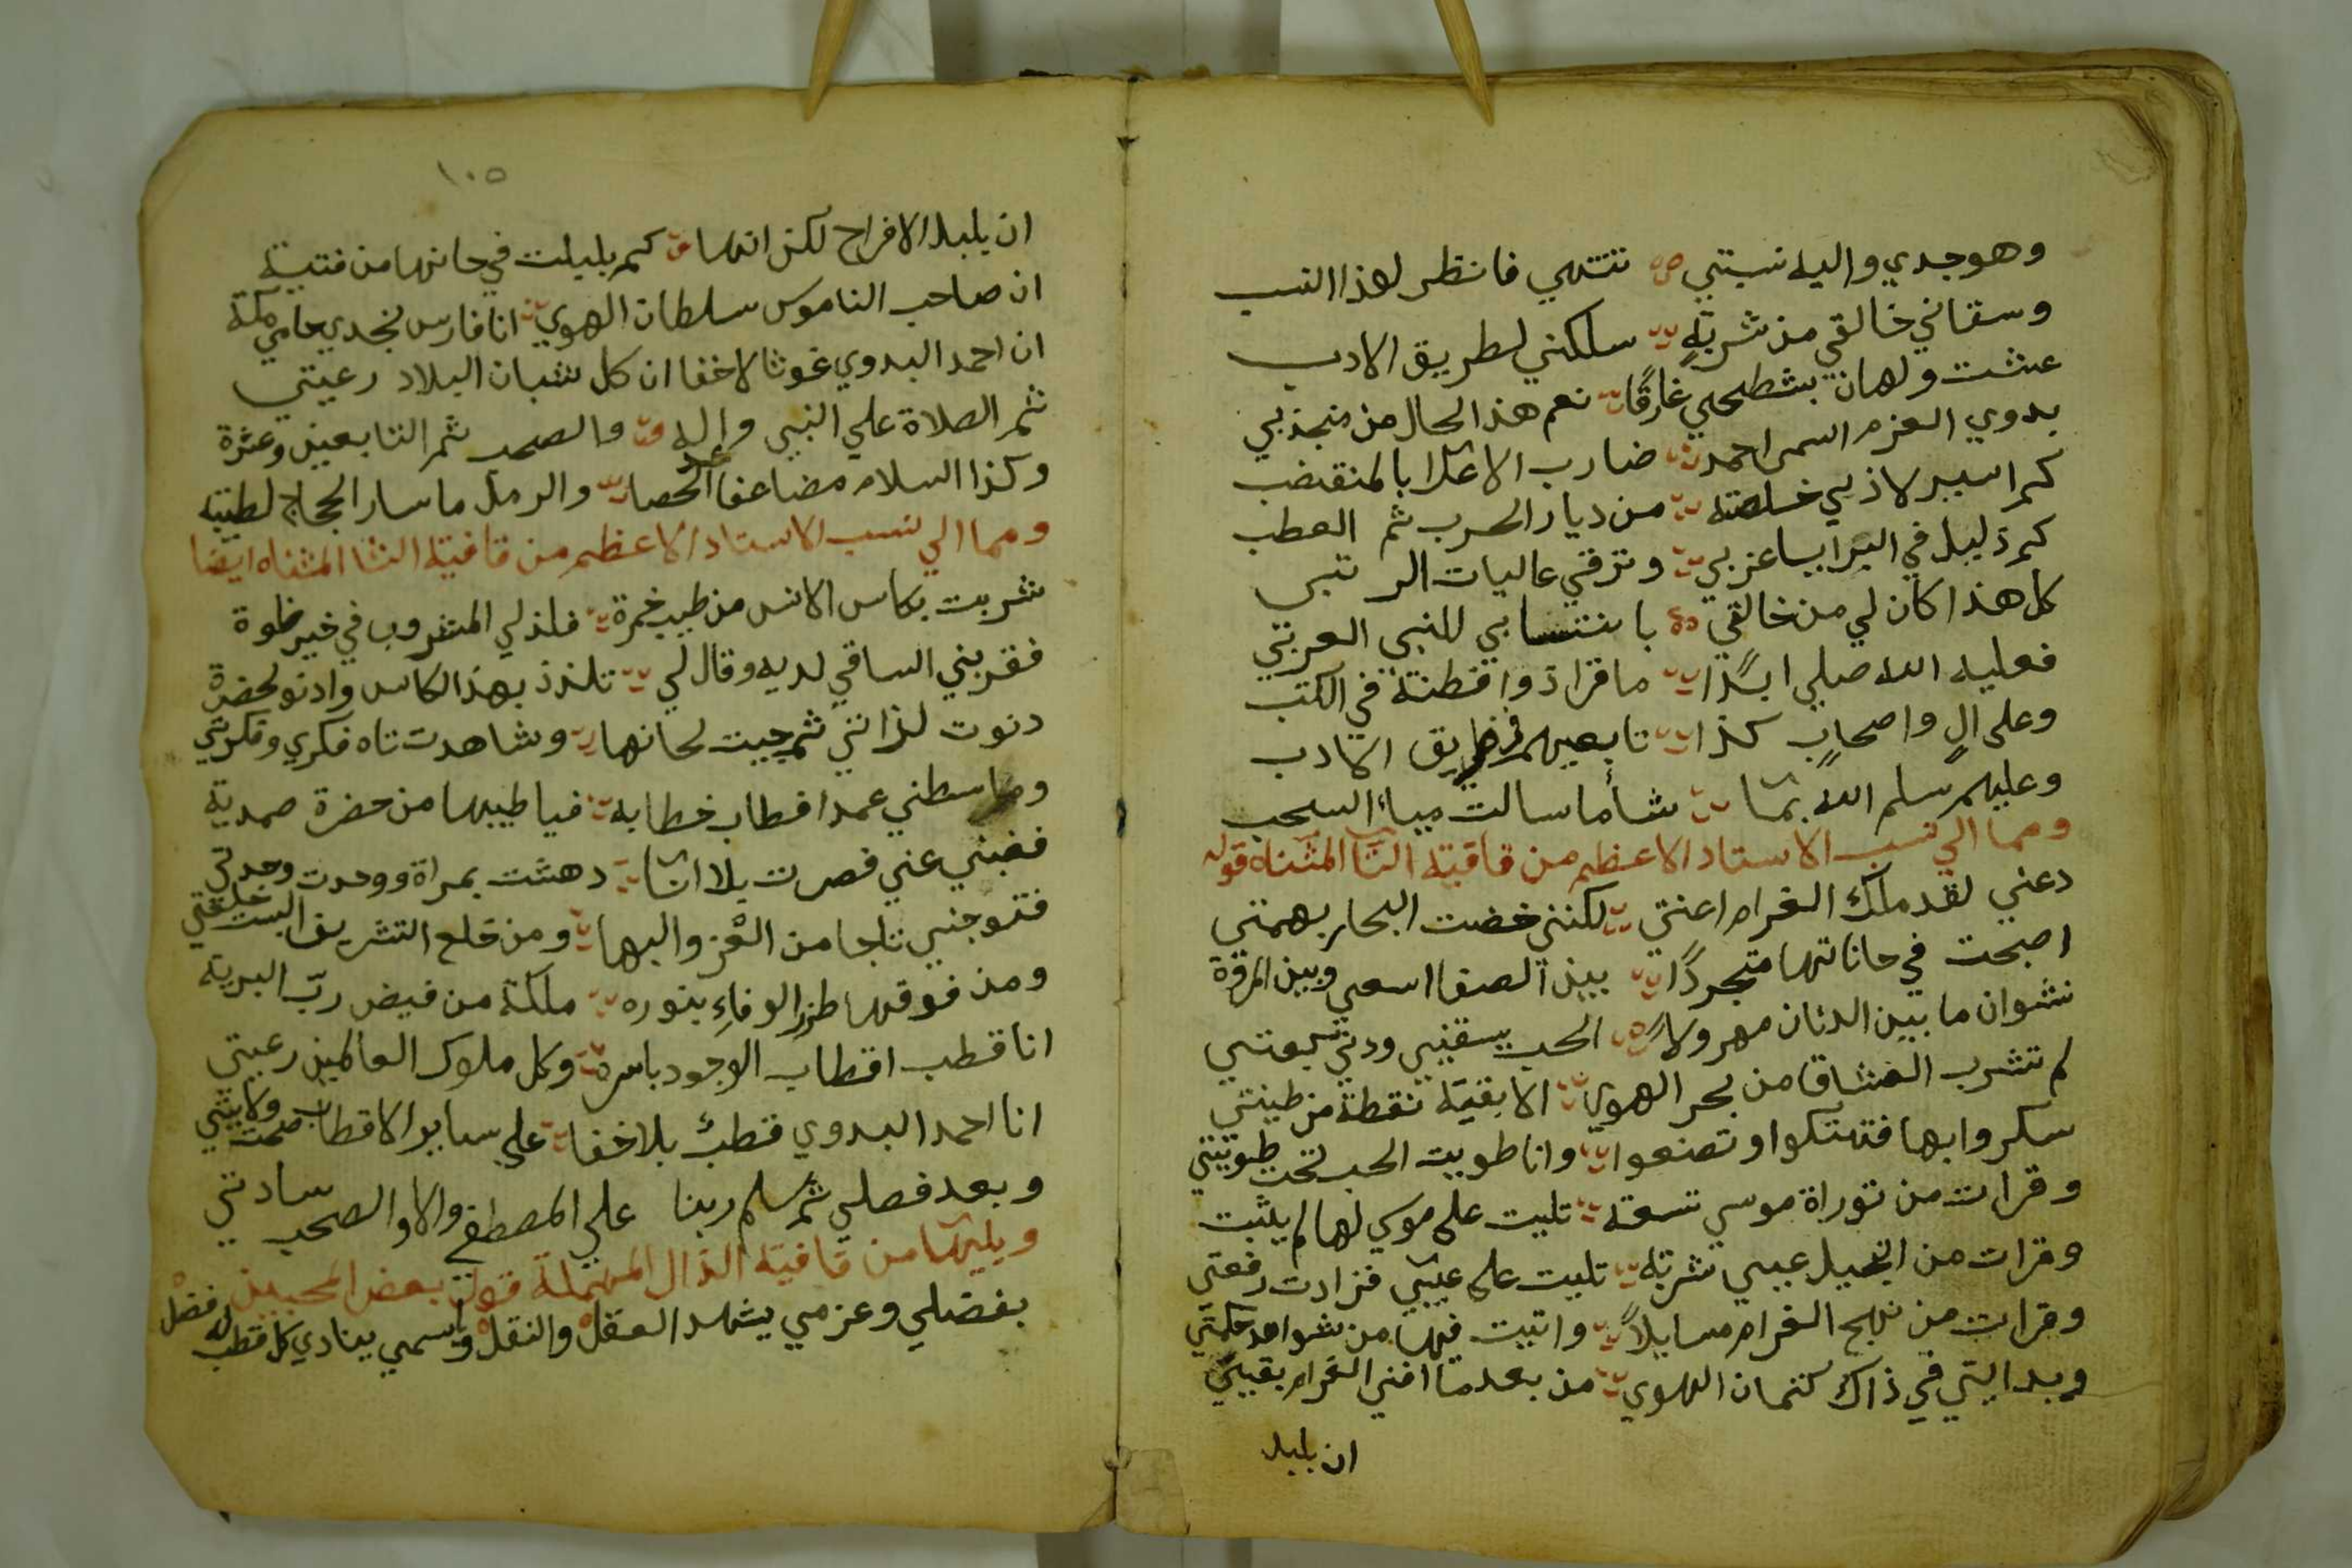 وهو جدي واليه نسبتي تنتهي فانظر لهذا النسب
وسقاني خالقي من شربةٍ سلكني لطريق الادب
عشت ولهان بشطحي غارقًا نعم هذا الحال من منجذبي
بدوي العزم اسمي احمد ضارب الاعدا بالمنقضب
كم اسير لاذ بي خلصته من ديار الحرب ثم العطب
كم ذليل في البرايا عز بي وترقي عاليات الرتبي
كل هذا كان لي من خالقي بانتسابي للنبي العربي
فعليه الله صلي ابدًا ما قرا ذوا فطنة في الكتب
وعلى الٍ واصحابٍ كذا تابعيهم في طريق الادب
وعليهم سلم الله بما شأ ما سالت مياء السحب
ومما الي نسب الاستاد الاعظم من قافية التا المثناه قوله
دعني لقد ملك الغرام اعنتي لكنني خضت البحار بهمتي
اصبحت في حاناتها متجردًا بين الصفا اسعي وبين المروة
نشوان ما بين الدنان مهرولا الحب يسقني ودني كعبتي
لم تشرب العشاق من بحر الهوي الا بقية نقطة من طينتي
سكروا بها فتهتكوا وتصنعوا وانا طويت الحب تحت طويتي
وقرات من توراة موسي تسعة تليت على موسي لها لم يثبت
وقرات من انجيل عيسي شربة تليت على عيسي فزادت رفعتي
وقرات من نهج الغرام مسايلاً واتيت فيها من شواهد حكمتي
وبدايتي في ذاك كتمان الهوي من بعد ما افني الغرام بقيتي
ان بلبل
١٠٥
ان بلبل الافراح لكن انها كم بلبلت في حانها من فتية
ان صاحب الناموس سلطان الهوي انا فارس نجدي حامي مكة
ان احمد البدوي غوثا لاخفا ان كل شبان البلاد رعيتي
ثم الصلاة علي النبي واله والصحب ثم التابعين وعترة
وكذا السلام مضاعفا عد الحصا والرمل ما سار الحجاج لطيبة
ومما الي نسب الاستاد الاعظم من قافية التا المثناه ايضا
شربت بكاس الانس من طيب خمرة فلذ لي المشروب في خير خلوة
فقربني الساقي لديه وقال لي تلذذ بهذا الكاس وادنو لحضرة
دنوت لذاتي ثم جيت لحانها وشاهدت تاه فكري وفكرتي
وباسطني عمدا فطاب خطابه فيا طيبها من حضرة صمدية
فغبني عني فصرت بلا انا دهشت بمراة ووحدت وحدتي
فتوجني تاجا من العْز والبها ومن خلع التشريف البست خلعتي
ومن فوقها طرز الوفاءِ بنوره ملكة من فيض ربّ البرية
انا قطب اقطاب الوجود باسره وكل ملوك العالمين رعيتي
انا احمد البدوي قطبٌ بلاخفا علي ساير الاقطاب صحت ولايتي
وبعد فصلي ثم سلم ربنا علي المصطفي والال والصحب سادتي
ويليها من قافية الدال المهملة قول بعض المحبين
بفضلي وعزمي يشهد العقل والنقل واسمي ينادي كل قطب له فضل